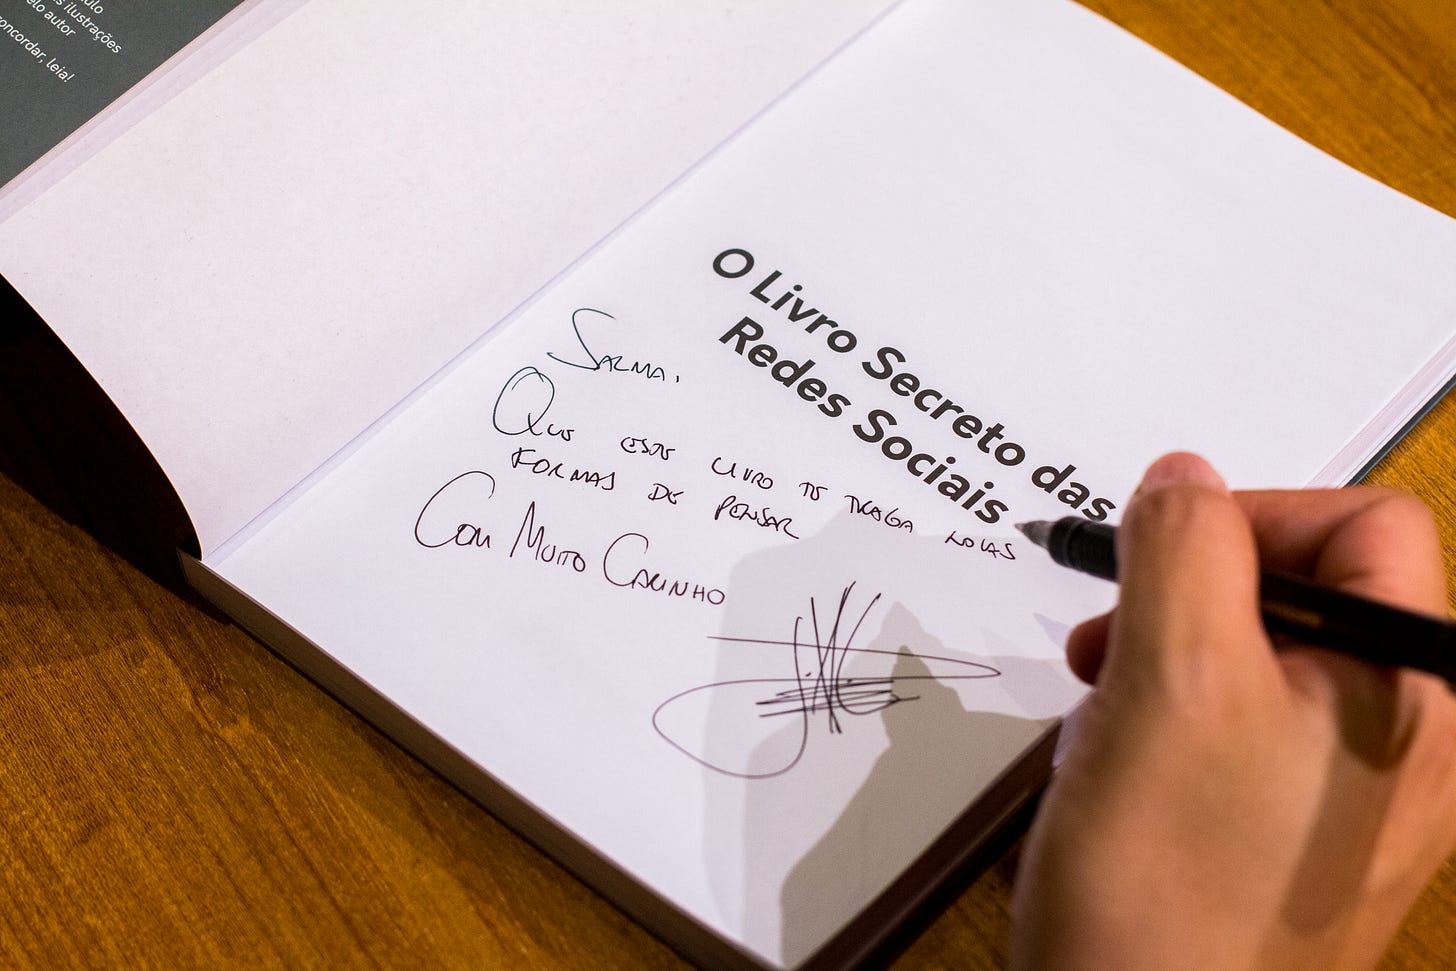 ulo
s ilustrações
elo autor
oncordar, leia!
O Livro Secreto das
Redes Sociais
Salma,
Que este livro te traga novas
formas de pensar
Com Muito Carinho